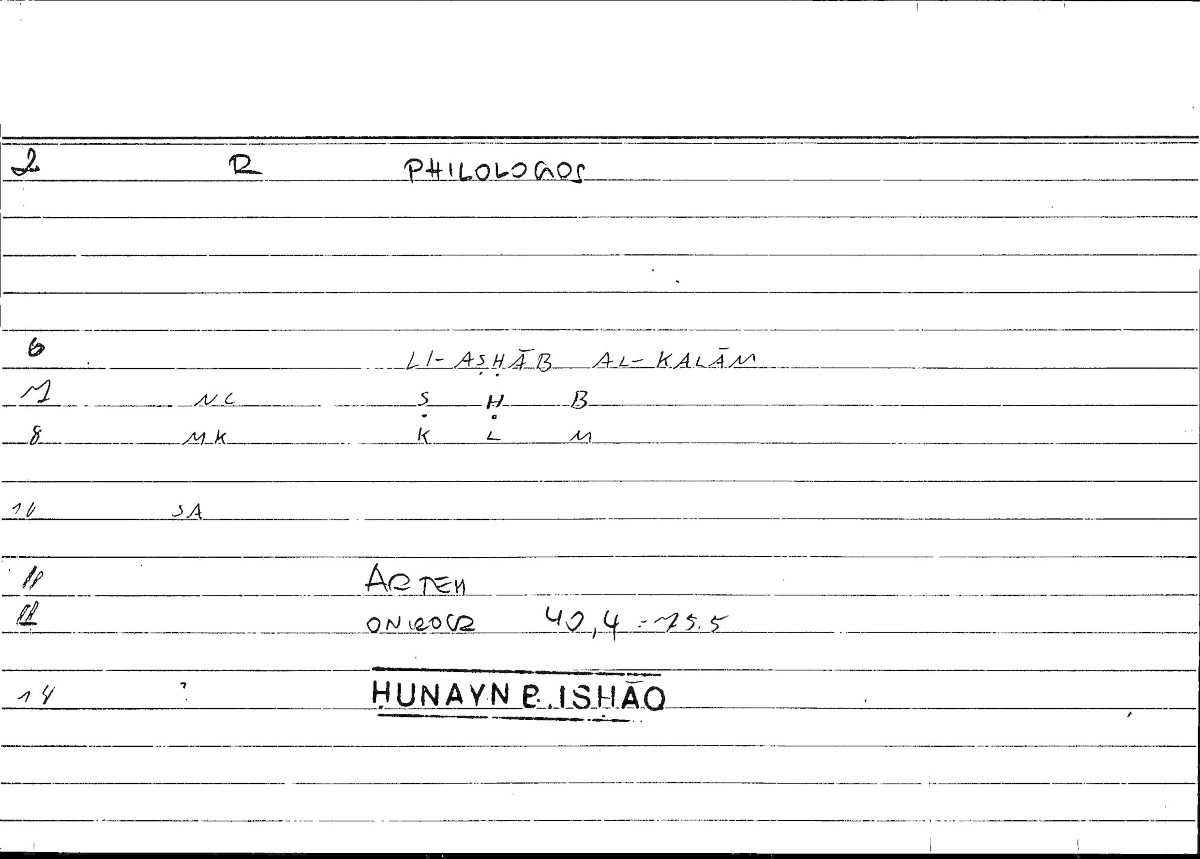 2 R PHILOLOGOS
6 LI-AṢḤĀB AL-KALĀM
7 NC Ṣ Ḥ B
8 MK K L M
10 SA
11 ARTEM
12 ONIROCR 42,4 = 75.5
14 ? ḤUNAYN B. ISḤĀQ